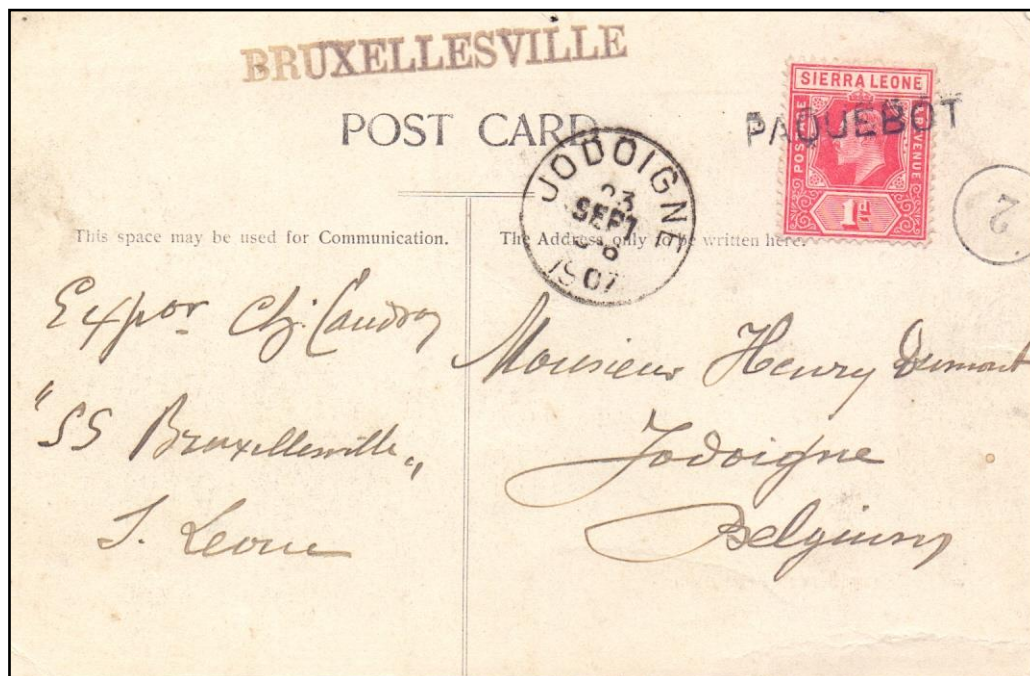 BRUXELLESVILLE
SIERRA LEONE
POSTAGE & REVENUE
1d
PAQUEBOT
POST CARD
JODOIGNE
23
SEPT
1907
2
This space may be used for Communication.
The Address only to be written here.
Expor Ch.
"SS Bruxellesville"
S. Leone
Monsieur Henry Dumont
Jodoigne
Belgium